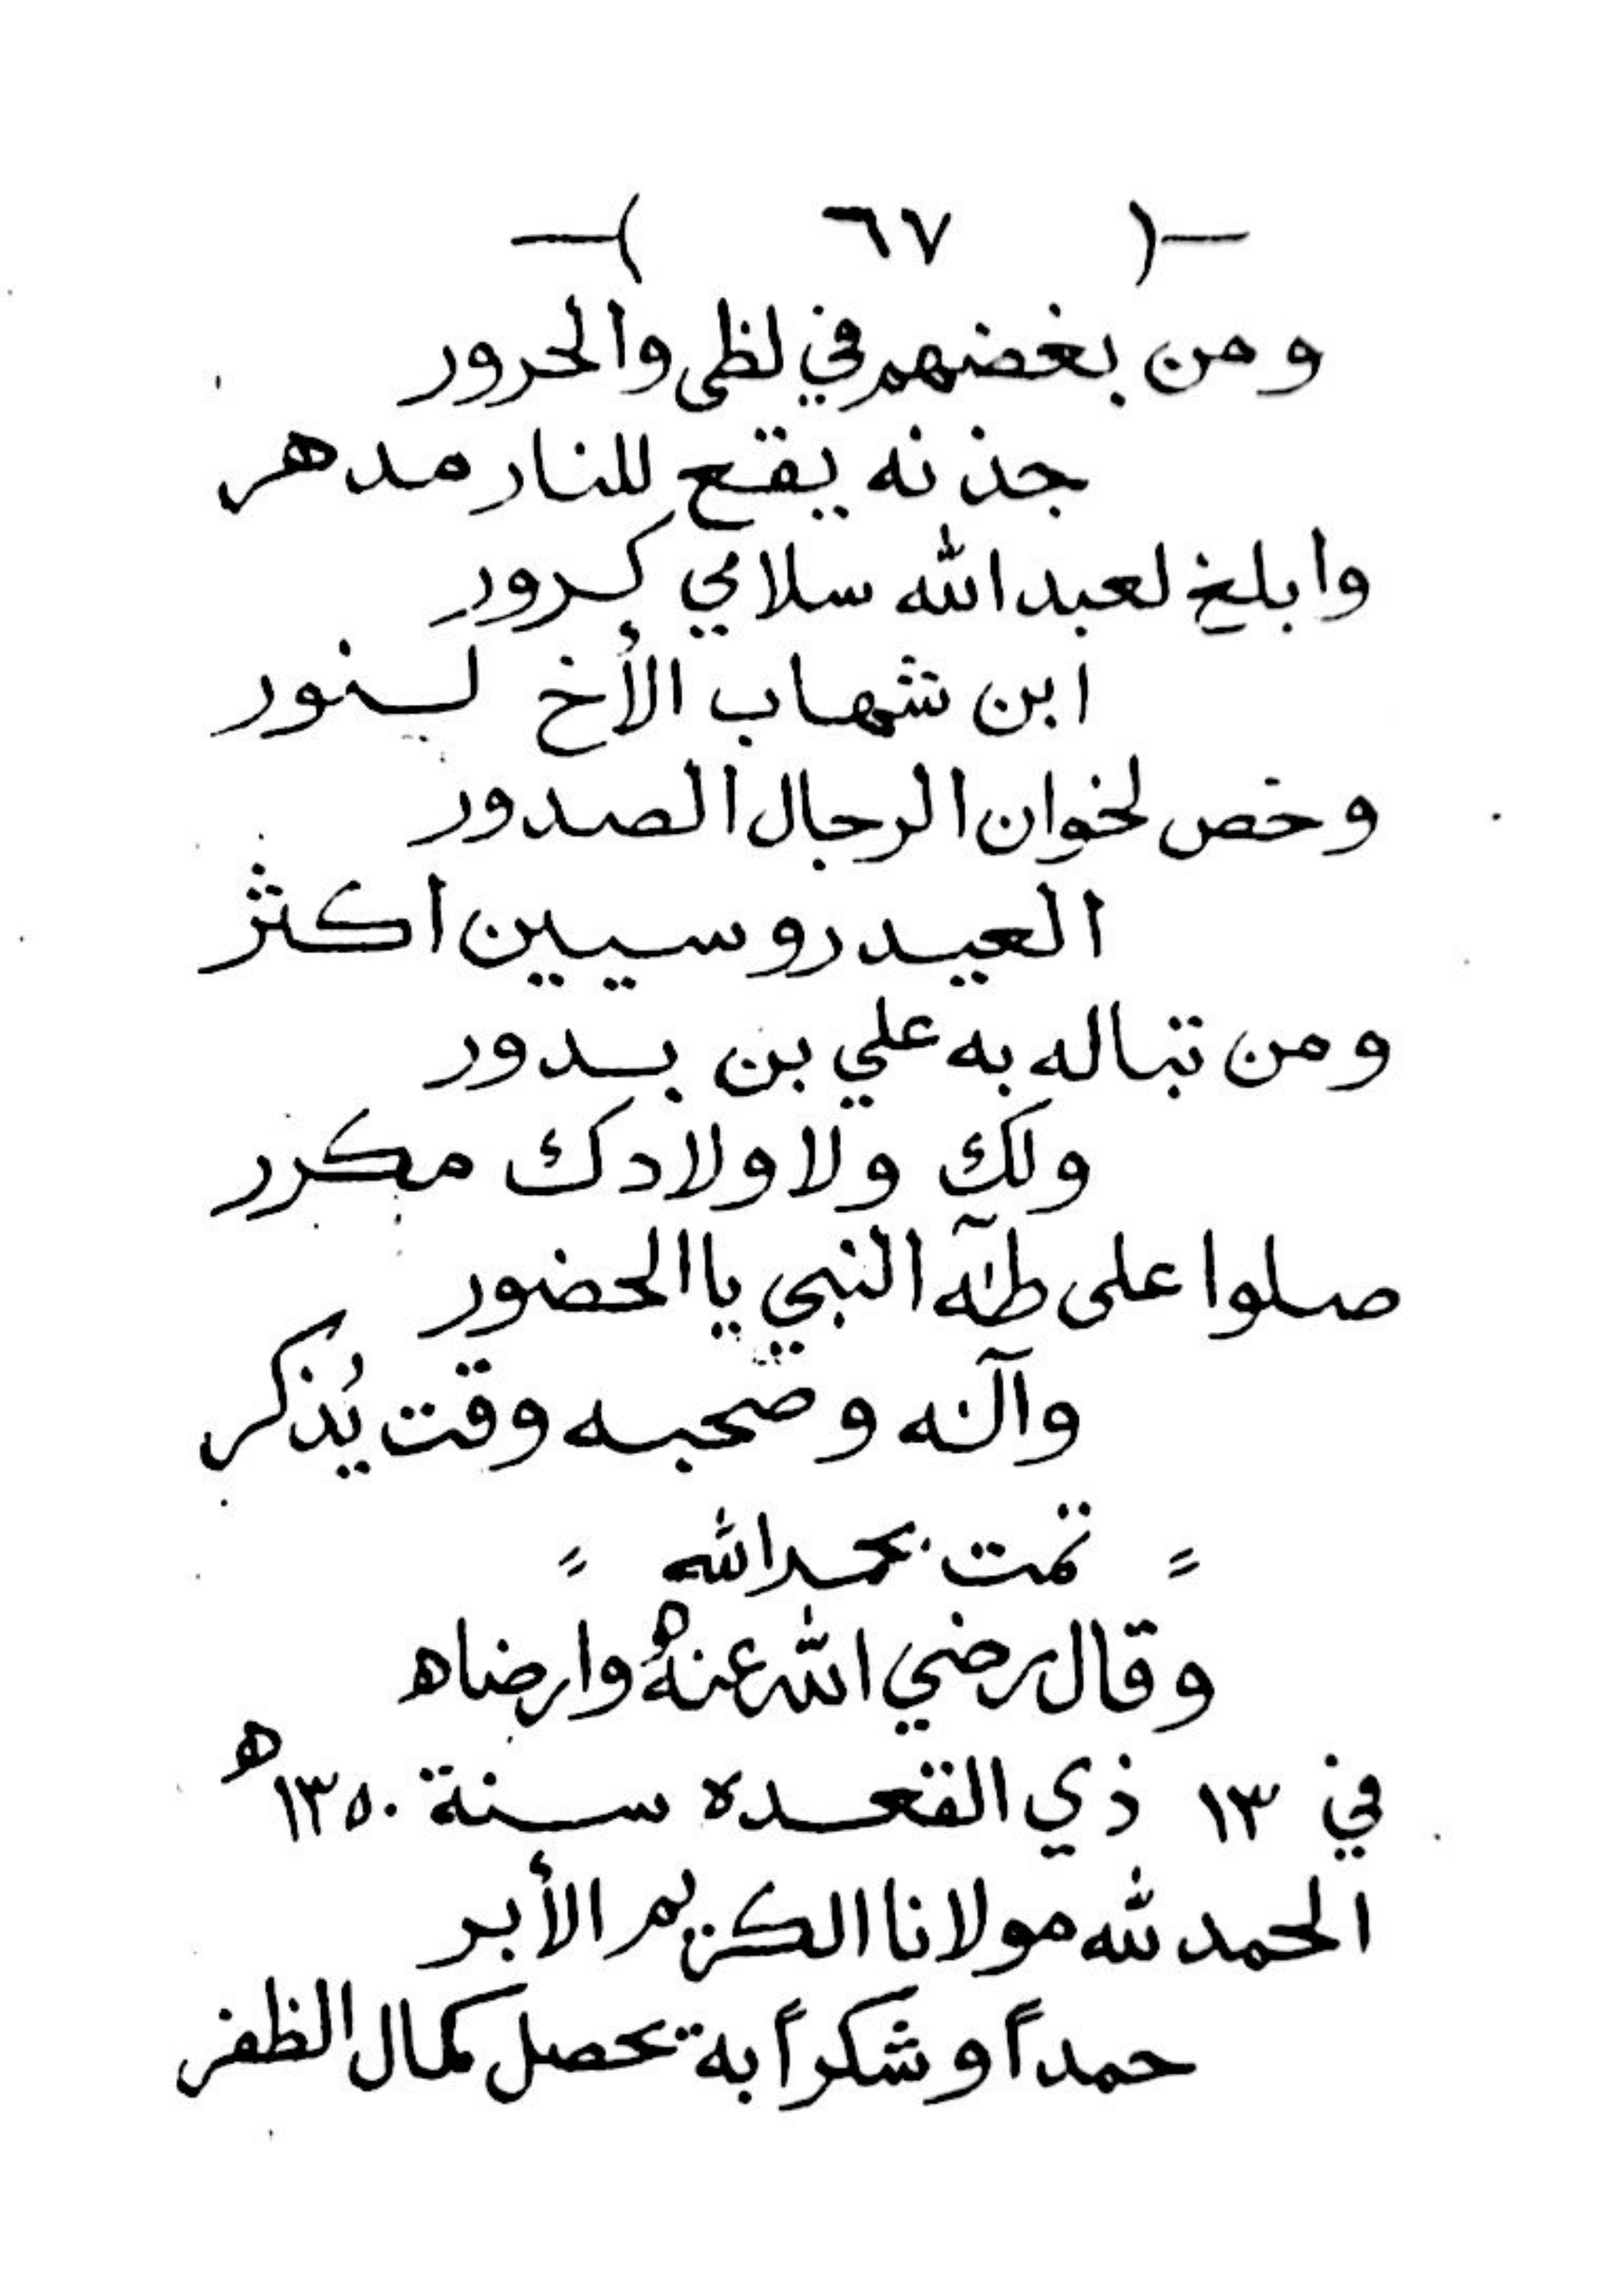 —( ٦٧ )—
ومن بغضهم في لظى والحرور
جذ نه يقع للنار مدهر
وابلغ لعبد الله سلامي كرور
ابن شهاب الأخ لسنور
وخص لخوان الرجال الصدور
العيدروسيين اكثر
ومن تباله به علي بن بدور
ولك ولاولادك مكرر
صلوا على طله النبي يا الحضور
وآله وصحبه وقت يُذكر
= تمت بحمد الله =
وقال رضي الله عنه وارضاه
في ١٣ ذي القعده سنة ١٣٥٠ ه
الحمد لله مولانا الكريم الأبر
حمداً وشكراً به تحصل كمال الظفر